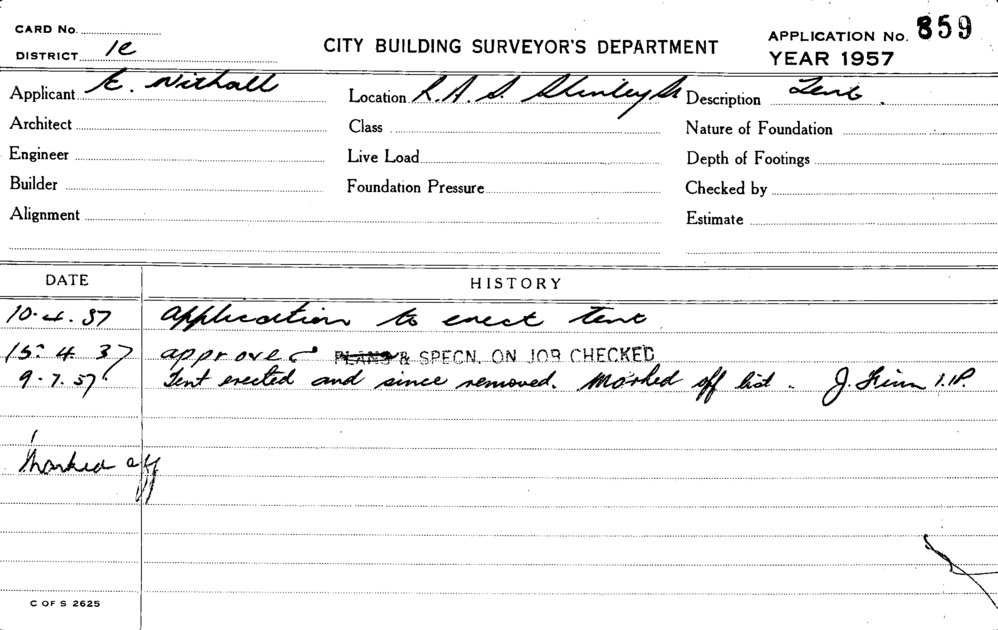 CARD No.
DISTRICT 1c
CITY BUILDING SURVEYOR'S DEPARTMENT
APPLICATION No. 859
YEAR 1957
Applicant E. Nithall Location R.A.S. Description Tent.
Architect Class Nature of Foundation
Engineer Live Load Depth of Footings
Builder Foundation Pressure Checked by
Alignment Estimate
DATE HISTORY
10.4.57 Application to erect tent
15.4.57 approved PLANS & SPECN. ON JOB CHECKED
9.7.57. Tent erected and since removed. Marked off list. J.
Marked off
C OF S 2625